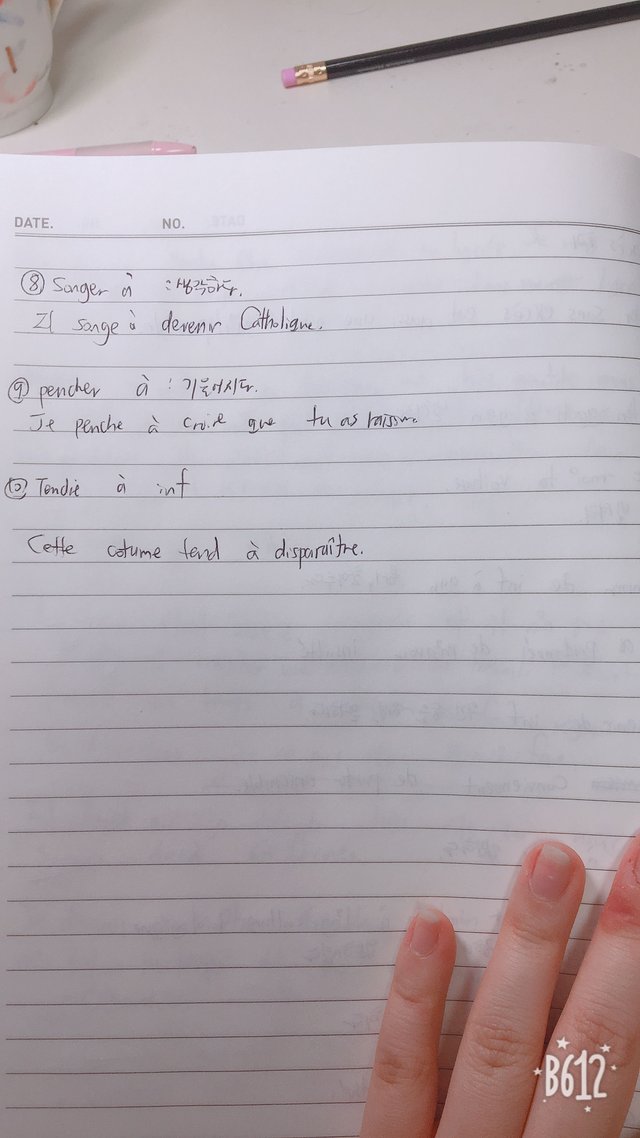 DATE. NO.
⑧ Songer à : 생각하다.
Il songe à devenir Catholique.
⑨ pencher à : 기울어지다.
Je penche à croire que tu as raison.
⑩ Tendre à inf
Cette cotume tend à disparaître.
B612